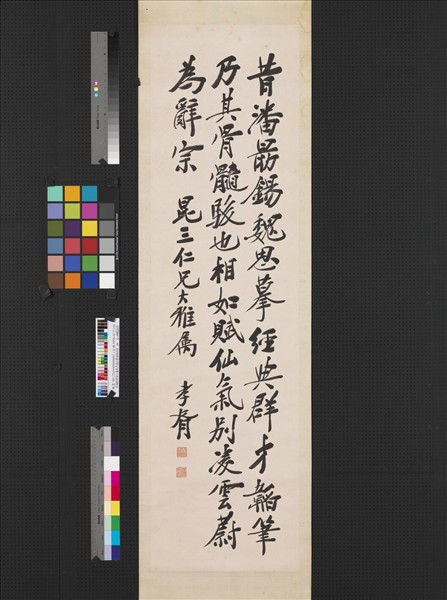 昔潘勗錫魏思摹經典群才韜筆
乃其骨髓駿也相如賦仙氣別凌雲蔚
為辭宗 昆三仁兄大雅屬 李胥